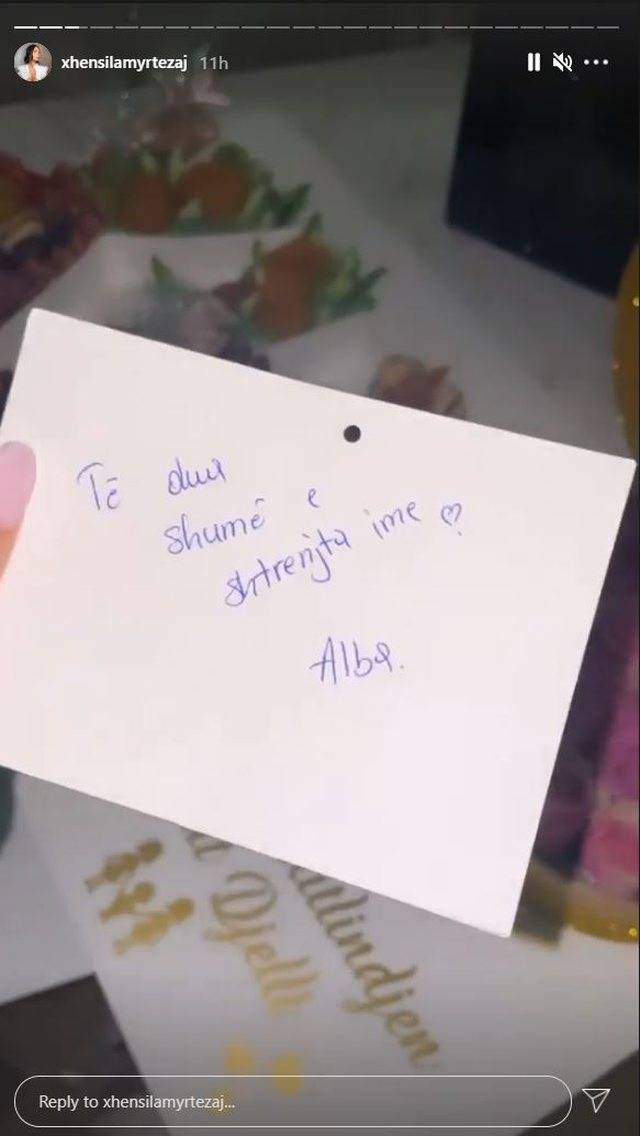 xhensilamyrtezaj 11h
Të dua
shumë e
shtrenjta ime
Alba.
Djelli
Reply to xhensilamyrtezaj...